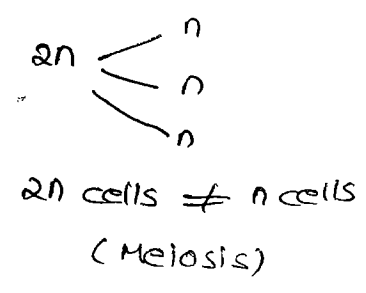 n
2n
n
n
2n cells ≠ n cells
(Meiosis)